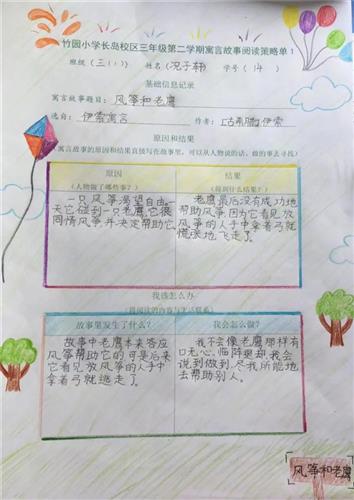 竹园小学长岛校区三年级第二学期寓言故事阅读策略单1
班级（三（1）） 姓名（况子韩） 学号（14）
基础信息记录
寓言故事题目：风筝和老鹰
选自：伊索寓言 作者：[古希腊]伊索
原因和结果
寓言故事的原因和结果直接写在故事里，可以从人物说的话、做的事去寻找）
原因
（人物做了哪些事？）
一只风筝渴望自由，一
天它碰到一只老鹰，它很
同情风筝并决定帮助它。
结果
（得到什么结果？）
老鹰最后没有成功地
帮助风筝，因为它看见放
风筝的人手中拿着弓就
慌张地飞走了。
我该怎么办
故事里发生了什么？
故事中老鹰本来答应
风筝帮助它的可是后来
它看见放风筝的人手中
拿着弓就逃走了。
我会怎么做？
我不会像老鹰那样有
口无心，临阵退却，我会
说到做到，尽我所能地
去帮助别人。
风筝和老鹰